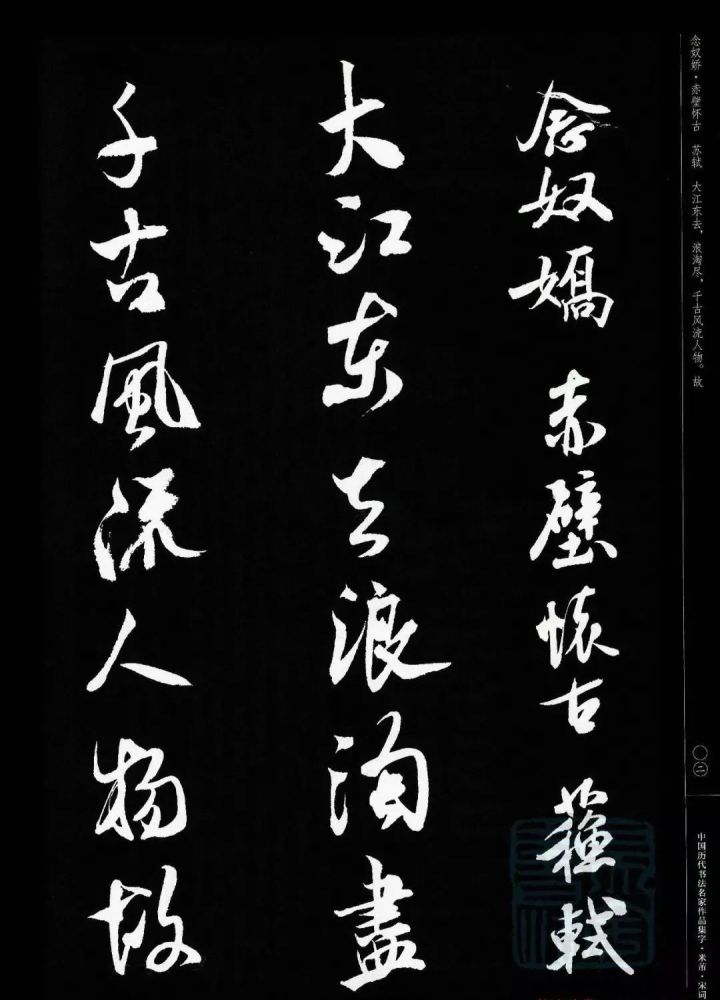 念奴嬌 赤壁懷古 蘇軾
大江東去浪淘盡
千古風流人物故
念奴娇·赤壁怀古 苏轼 大江东去，浪淘尽，千古风流人物。故
〇二
中国历代书法名家作品集字·米芾·宋词